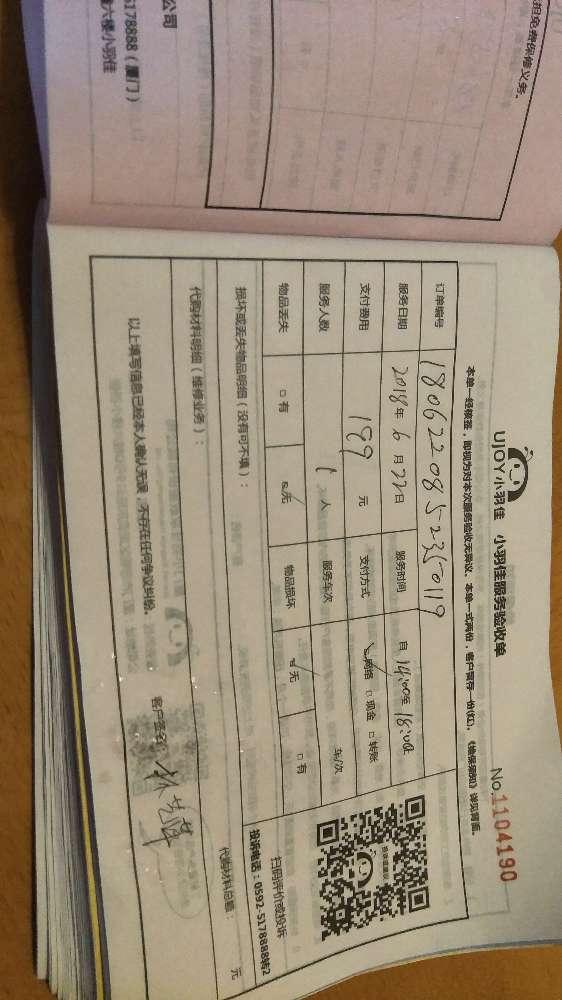 担免费保修义务。
公司
5178888（厦门）
六楼小羽佳
UJOY小羽佳 小羽佳服务验收单
No.1104190
本单一经核签，即视为对本次服务验收无异议。本单一式两份，客户留存一份(红)，《维保须知》详见背面。
订单编号 180622085-235-0119
服务日期 2018年6月22日 服务时间 自14:00至18:00止
支付费用 199元 支付方式 ☑网络 □现金 □转账
服务人数 1人 服务车次 车/次
物品丢失 □有 ☑无 物品损坏 ☑无 □有
扫码评价或投诉
投诉电话：0592-5178888转2
损坏或丢失物品明细（没有可不填）：
代购材料明细（维修业务）：
代购材料总额： 元
以上填写信息已经本人确认无误，不存在任何争议纠纷。
客户签名：